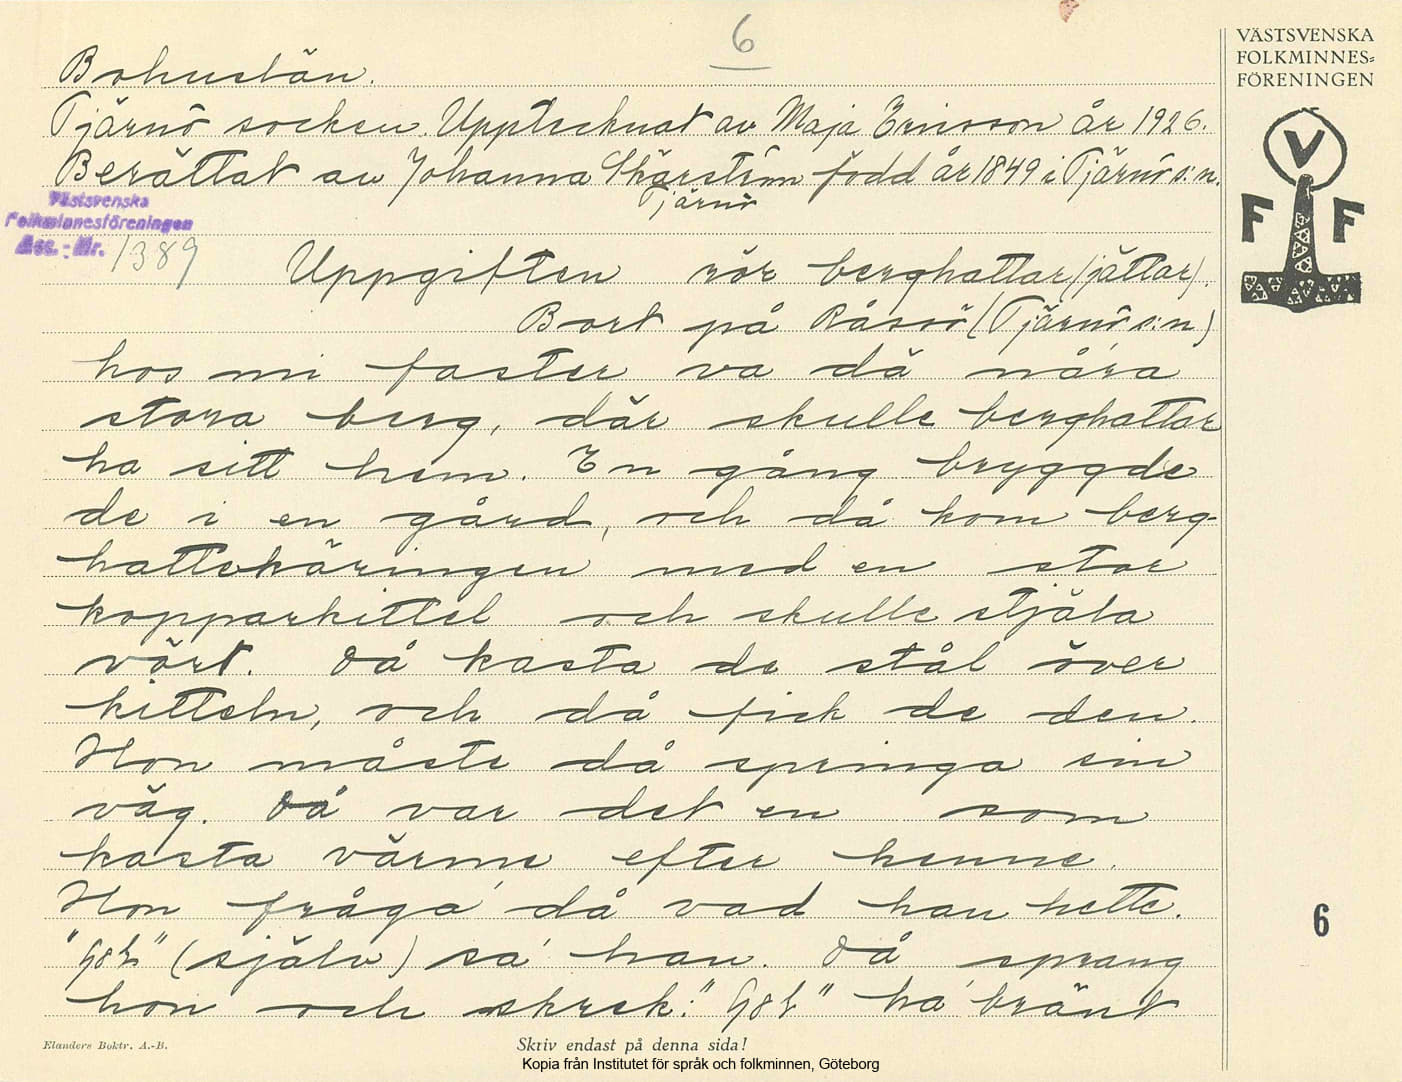 6
VÄSTSVENSKA
FOLKMINNES=
FÖRENINGEN
V
F F
Bohuslän.
Tjärnö socken. Upptecknat av Maja Ericsson år 1926.
Berättat av Johanna Skärström född år 1849 i Tjärnö s:n.
Tjärnö
Västsvenska
Folkminnesföreningen
Acc.-Nr. 1389
Uppgiften rör berghattar (jättar).
Bort på Råssö (Tjärnö s:n)
hos mi faster va då nåra
stora berg, där skulle berghattar
ha sitt hem. En gång bryggde
de i en gård, och då kom berg-
hattekäringen med en stor
kopparkittel och skulle stjäla
vört. Då kasta de stål över
kitteln, och då fick de den.
Hon måste då springa sin
väg. Då var det en som
kasta värme efter henne.
Hon fråga' då vad han hette.
(själv) sa' han. Då sprang
hon och skrek: ha' bränt
6
Elanders Boktr. A.-B.
Skriv endast på denna sida!
Kopia från Institutet för språk och folkminnen, Göteborg